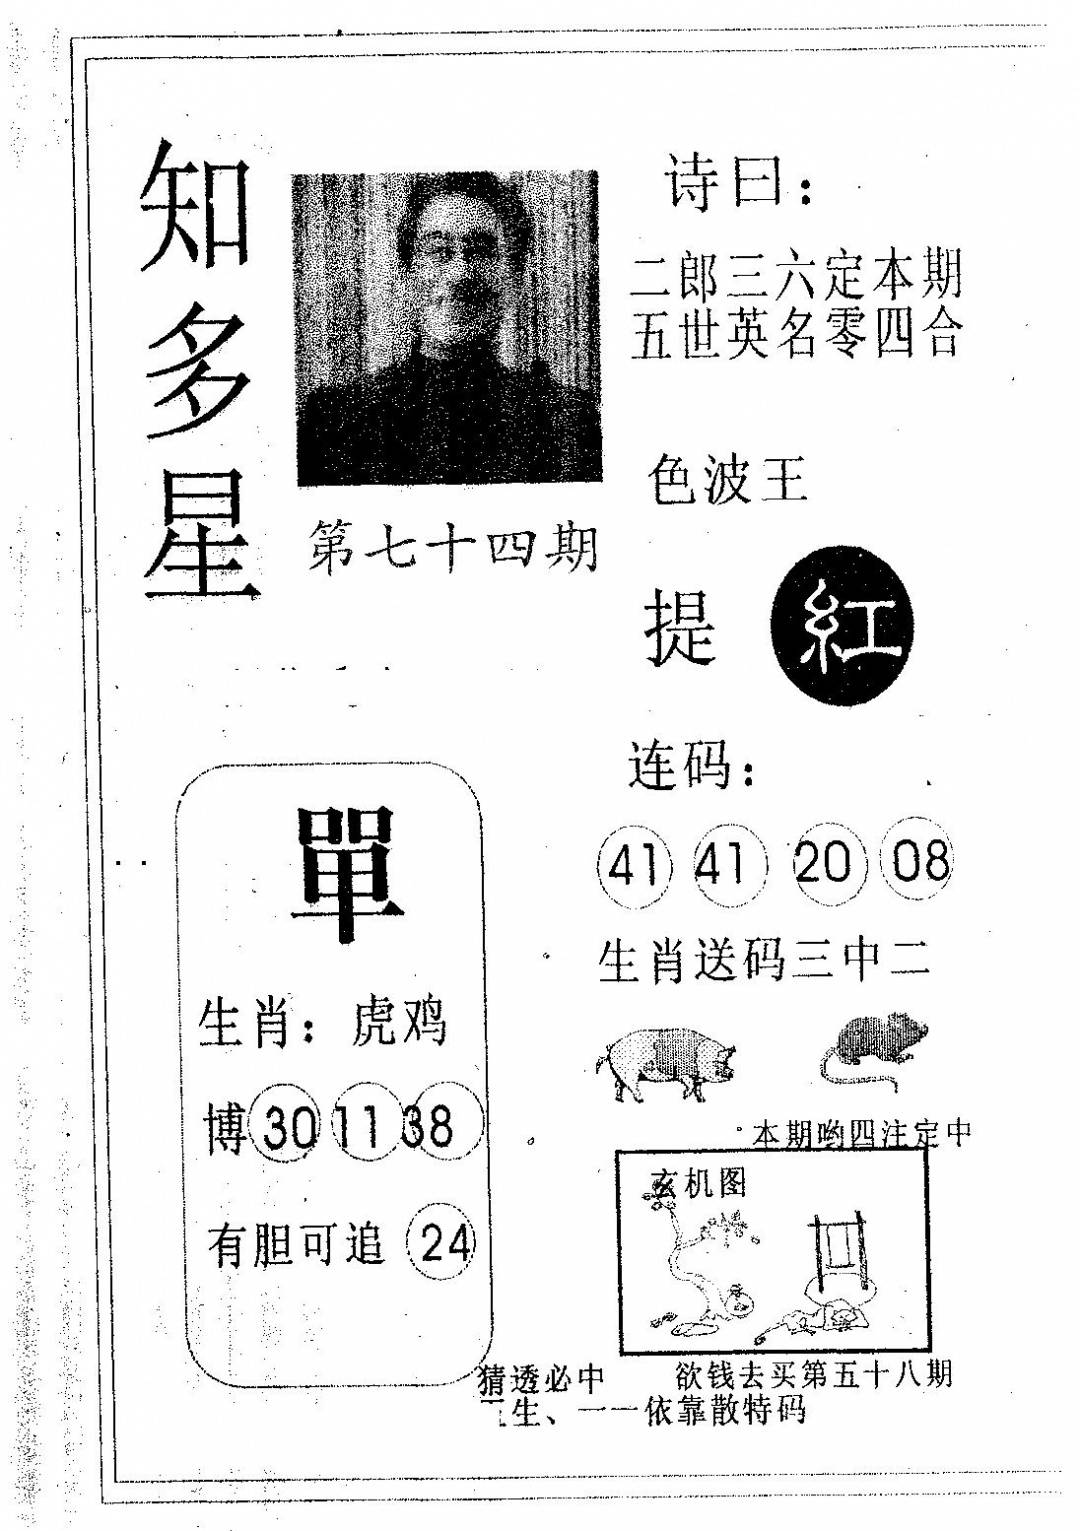 知多星
诗曰：
二郎三六定本期
五世英名零四合
第七十四期
色波王
提 紅
單
生肖：虎鸡
博 30 11 38
有胆可追 24
连码：
41 41 20 08
生肖送码三中二
本期哟四注定中
玄机图
猜透必中 欲钱去买第五十八期
生、一一依靠散特码